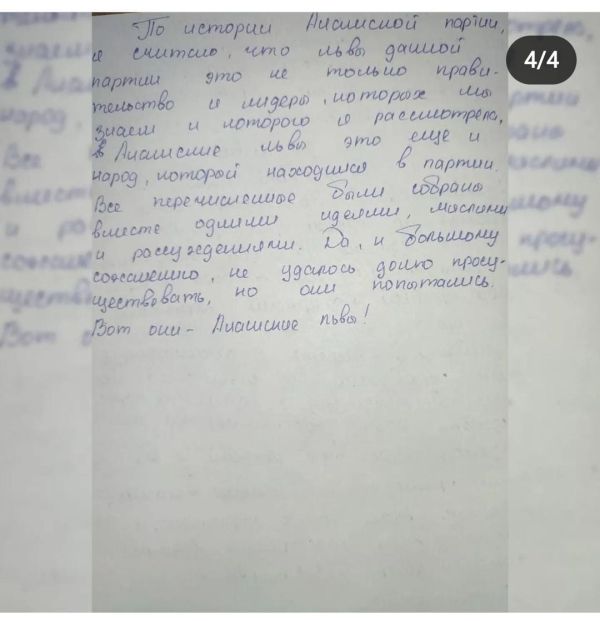 По истории Алашской партии,
я считаю, что львы данной
партии это не только прави-
тельство и лидеры, которых мы
знаем и которого я рассмотрела,
Алашские львы это еще и
народ, который находился в партии.
Все перечисленные были собраны
вместе одними идеями, мыслями
и рассуждениями. Да, к большому
сожалению, не удалось долго просу-
ществовать, но они попытались.
Вот они - Алашские львы!
4/4